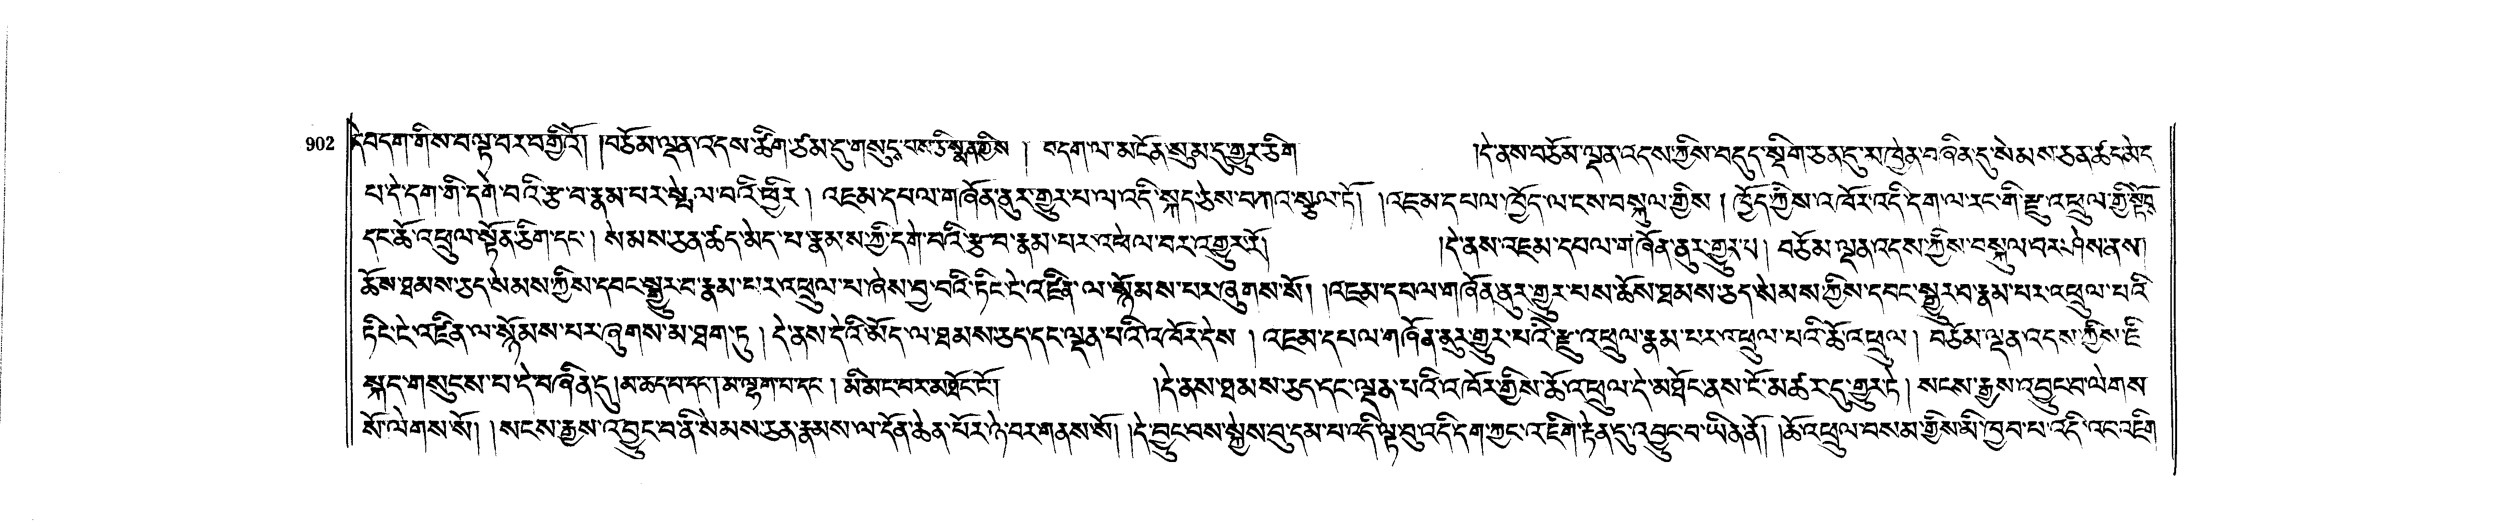 902
དེ་བདག་གིས་བལྟ་བར་བགྱིའོ། །བཅོམ་ལྡན་འདས་ཚིག་ཙམ་དུ་གསུང་བས་ཅི་སྣན་གྱིས། བདག་ལ་མངོན་སུམ་དུ་གྱུར་ཅིག །དེ་ནས་བཅོམ་ལྡན་འདས་ཀྱིས་བདུད་སྡིག་ཅན་དུ་མ་ཁྱེན་བཞིན་དུ་སེམས་ཅན་ཚད་མེད་
པ་དེ་དག་གི་དགེ་བའི་རྩ་བ་རྣམ་པར་སྤེལ་བའི་ཕྱིར། འཇམ་དཔལ་གཞོན་ནུར་གྱུར་པ་ལ་འདི་སྐད་ཅེས་བཀའ་སྩལ་ཏོ། །འཇམ་དཔལ་ཁྱོད་ལ་ངས་བསྐུལ་གྱིས། ཁྱོད་ཀྱིས་འཁོར་འདི་དག་ལ་རང་གི་རྫུ་འཕྲུལ་གྱི་སྟོབས་
དང་ཆོ་འཕྲུལ་སྟོན་ཅིག་དང་། སེམས་ཅན་ཚད་མེད་པ་རྣམས་ཀྱི་དགེ་བའི་རྩ་བ་རྣམ་པར་འཕེལ་བར་འགྱུར་རོ། །དེ་ནས་འཇམ་དཔལ་གཞོན་ནུར་གྱུར་པ། བཅོམ་ལྡན་འདས་ཀྱིས་བསྐུལ་བར་ཤེས་ནས།
ཆོས་ཐམས་ཅད་སེམས་ཀྱིས་དབང་སྒྱུར་བ་རྣམ་པར་འཕྲུལ་པ་ཞེས་བྱ་བའི་ཏིང་ངེ་འཛིན་ལ་སྙོམས་པར་ཞུགས་སོ། །འཇམ་དཔལ་གཞོན་ནུར་གྱུར་པས་ཆོས་ཐམས་ཅད་སེམས་ཀྱིས་དབང་སྒྱུར་བ་རྣམ་པར་འཕྲུལ་པའི་
ཏིང་ངེ་འཛིན་ལ་སྙོམས་པར་ཞུགས་མ་ཐག་ཏུ། དེ་ནས་དེའི་མོད་ལ་ཐམས་ཅད་དང་ལྡན་པའི་འཁོར་དེས། འཇམ་དཔལ་གཞོན་ནུར་གྱུར་པའི་རྫུ་འཕྲུལ་རྣམ་པར་འཕྲུལ་པའི་ཆོ་འཕྲུལ། བཅོམ་ལྡན་འདས་ཀྱིས་ཇི་
སྐད་གསུངས་པ་དེ་བཞིན་དུ།མ་ཆད་པ་དང་། མ་ལྷག་པ་དང་། མི་མང་བར་མཐོང་ངོ་། །དེ་ནས་ཐམས་ཅད་དང་ལྡན་པའི་འཁོར་གྱིས་ཆོ་འཕྲུལ་དེ་མཐོང་ནས་ངོ་མཚར་དུ་གྱུར་ཏེ། སངས་རྒྱས་འབྱུང་བ་ལེགས་
སོ་ལེགས་སོ། །སངས་རྒྱས་འབྱུང་བ་ནི་སེམས་ཅན་རྣམས་ལ་དོན་ཆེན་པོར་ཉེ་བར་གནས་སོ། །དེ་བྱུང་བས་སྐྱེས་བུ་དམ་པ་འདི་ལྟ་བུ་འདི་དག་ཀྱང་འཇིག་རྟེན་དུ་འབྱུང་བ་ཡིན་ནོ། །ཆོ་འཕྲུལ་བསམ་གྱིས་མི་ཁྱབ་པ་འདི་འང་འཇིག